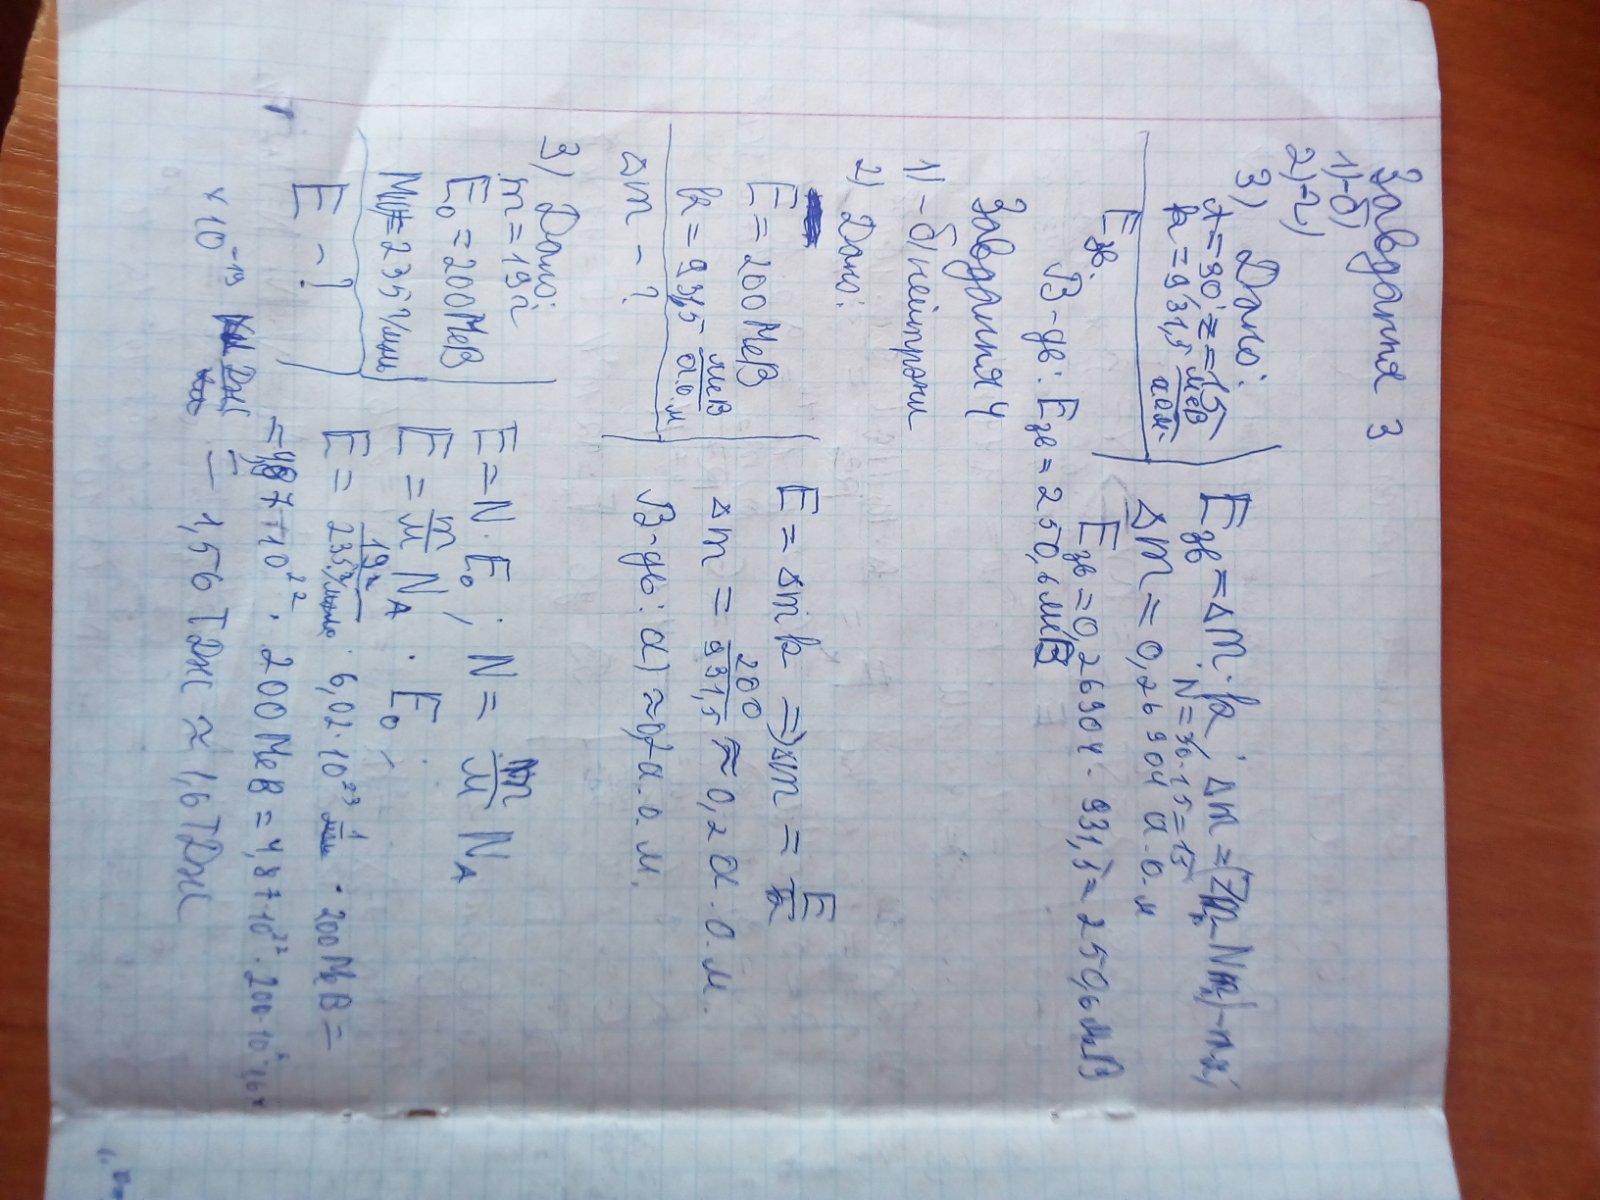 Завдання 3
1)-б)
2)-г)
3) Дано:
A=30; z=15
k=931,5 МеВ/а.о.м.
Eзв.
Eзв=Δm·k; Δm=(Zmp-Nmn)-mя;
N=30-15=15
Δm=0,26904 а.о.м
Eзв=0,26904·931,5=250,6 МеВ
В-дь: Eзв=250,6 МеВ
Завдання 4
1)-б) нейтрони
2) Дано:
E=200 МеВ
k=931,5 МеВ/а.о.м
Δm-?
E=Δmk=>Δm=E/k
Δm=200/931,5≈0,2 а.о.м.
В-дь: а)≈0,2 а.о.м.
3) Дано:
m=19г
E₀=200МеВ
M=235 г/моль
E-?
E=N·E₀; N=m/M NA
E=m/M NA·E₀;
E=19г/235г/моль·6,02·10²³ 1/моль·200МеВ=
=4,87·10²²·200МеВ=4,87·10²²·200·10⁶·1,6×
×10⁻¹⁹ Дж = 1,56 ТДж ≈ 1,6 ТДж